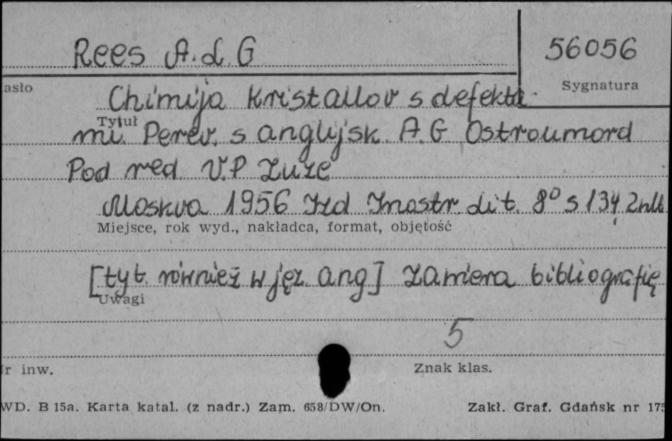 Rees A.L.G
56056
asło
Sygnatura
Chimija kristallov s defekta-
Tytuł
mi. Perev. s anglijsk. A.G Ostroumord
Pod red V.P Zuze
Moskva 1956 Izd Inostr. Lit. 8° s 134, 2nlb
Miejsce, rok wyd., nakładca, format, objętość
[tyt. również w jęz. ang] zawiera bibliografię
Uwagi
5
r inw.
Znak klas.
WD. B 15a. Karta katal. (z nadr.) Zam. 658/DW/On.
Zakł. Graf. Gdańsk nr 175